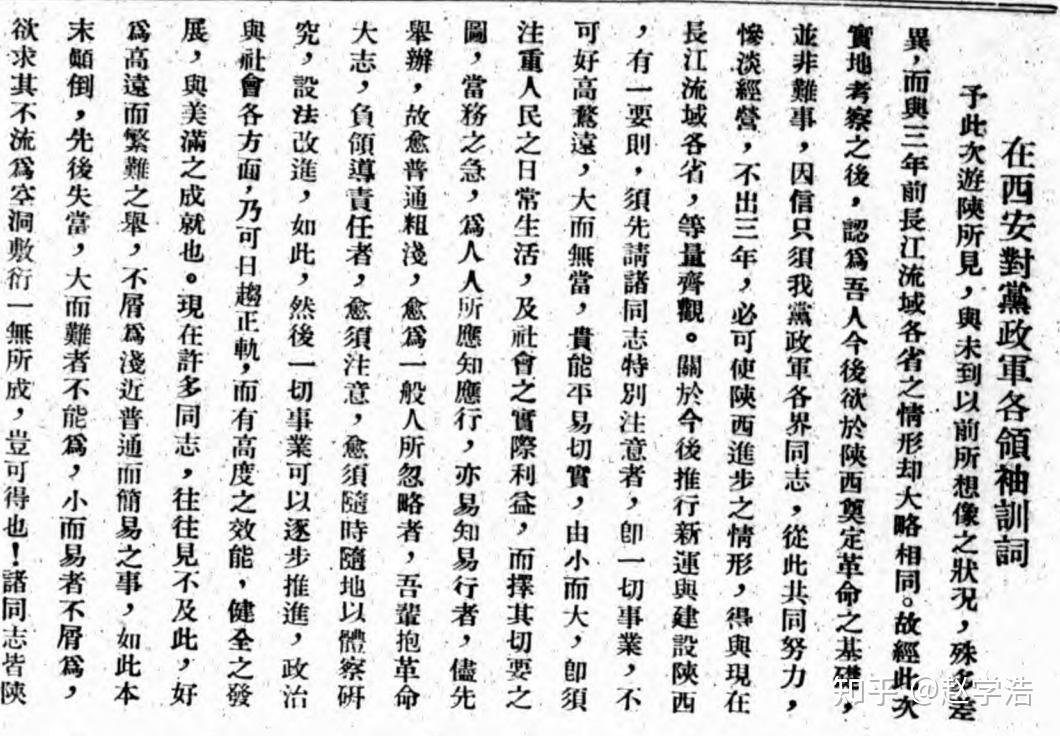 在西安對黨政軍各領袖訓詞
予此次遊陝所見，與未到以前所想像之狀況，殊多差
異，而與三年前長江流域各省之情形却大略相同。故經此次
實地考察之後，認爲吾人今後欲於陝西奠定革命之基礎，
並非難事，因信只須我黨政軍各界同志，從此共同努力，
慘淡經營，不出三年，必可使陝西進步之情形，得與現在
長江流域各省，等量齊觀。關於今後推行新運與建設陝西
，有一要則，須先請諸同志特別注意者，卽一切事業，不
可好高騖遠，大而無當，貴能平易切實，由小而大，卽須
注重人民之日常生活，及社會之實際利益，而擇其切要之
圖，當務之急，爲人人所應知應行，亦易知易行者，儘先
舉辦，故愈普通粗淺，愈爲一般人所忽略者，吾輩抱革命
大志，負領導責任者，愈須注意，愈須隨時隨地以體察硏
究，設法改進，如此，然後一切事業可以逐步推進，政治
與社會各方面，乃可日趨正軌，而有高度之效能，健全之發
展，與美滿之成就也。現在許多同志，往往見不及此，好
爲高遠而繁難之舉，不屑爲淺近普通而簡易之事，如此本
末顚倒，先後失當，大而難者不能爲，小而易者不屑爲，
欲求其不流爲空洞敷衍一無所成，豈可得也！諸同志皆陝
知乎 @赵学浩